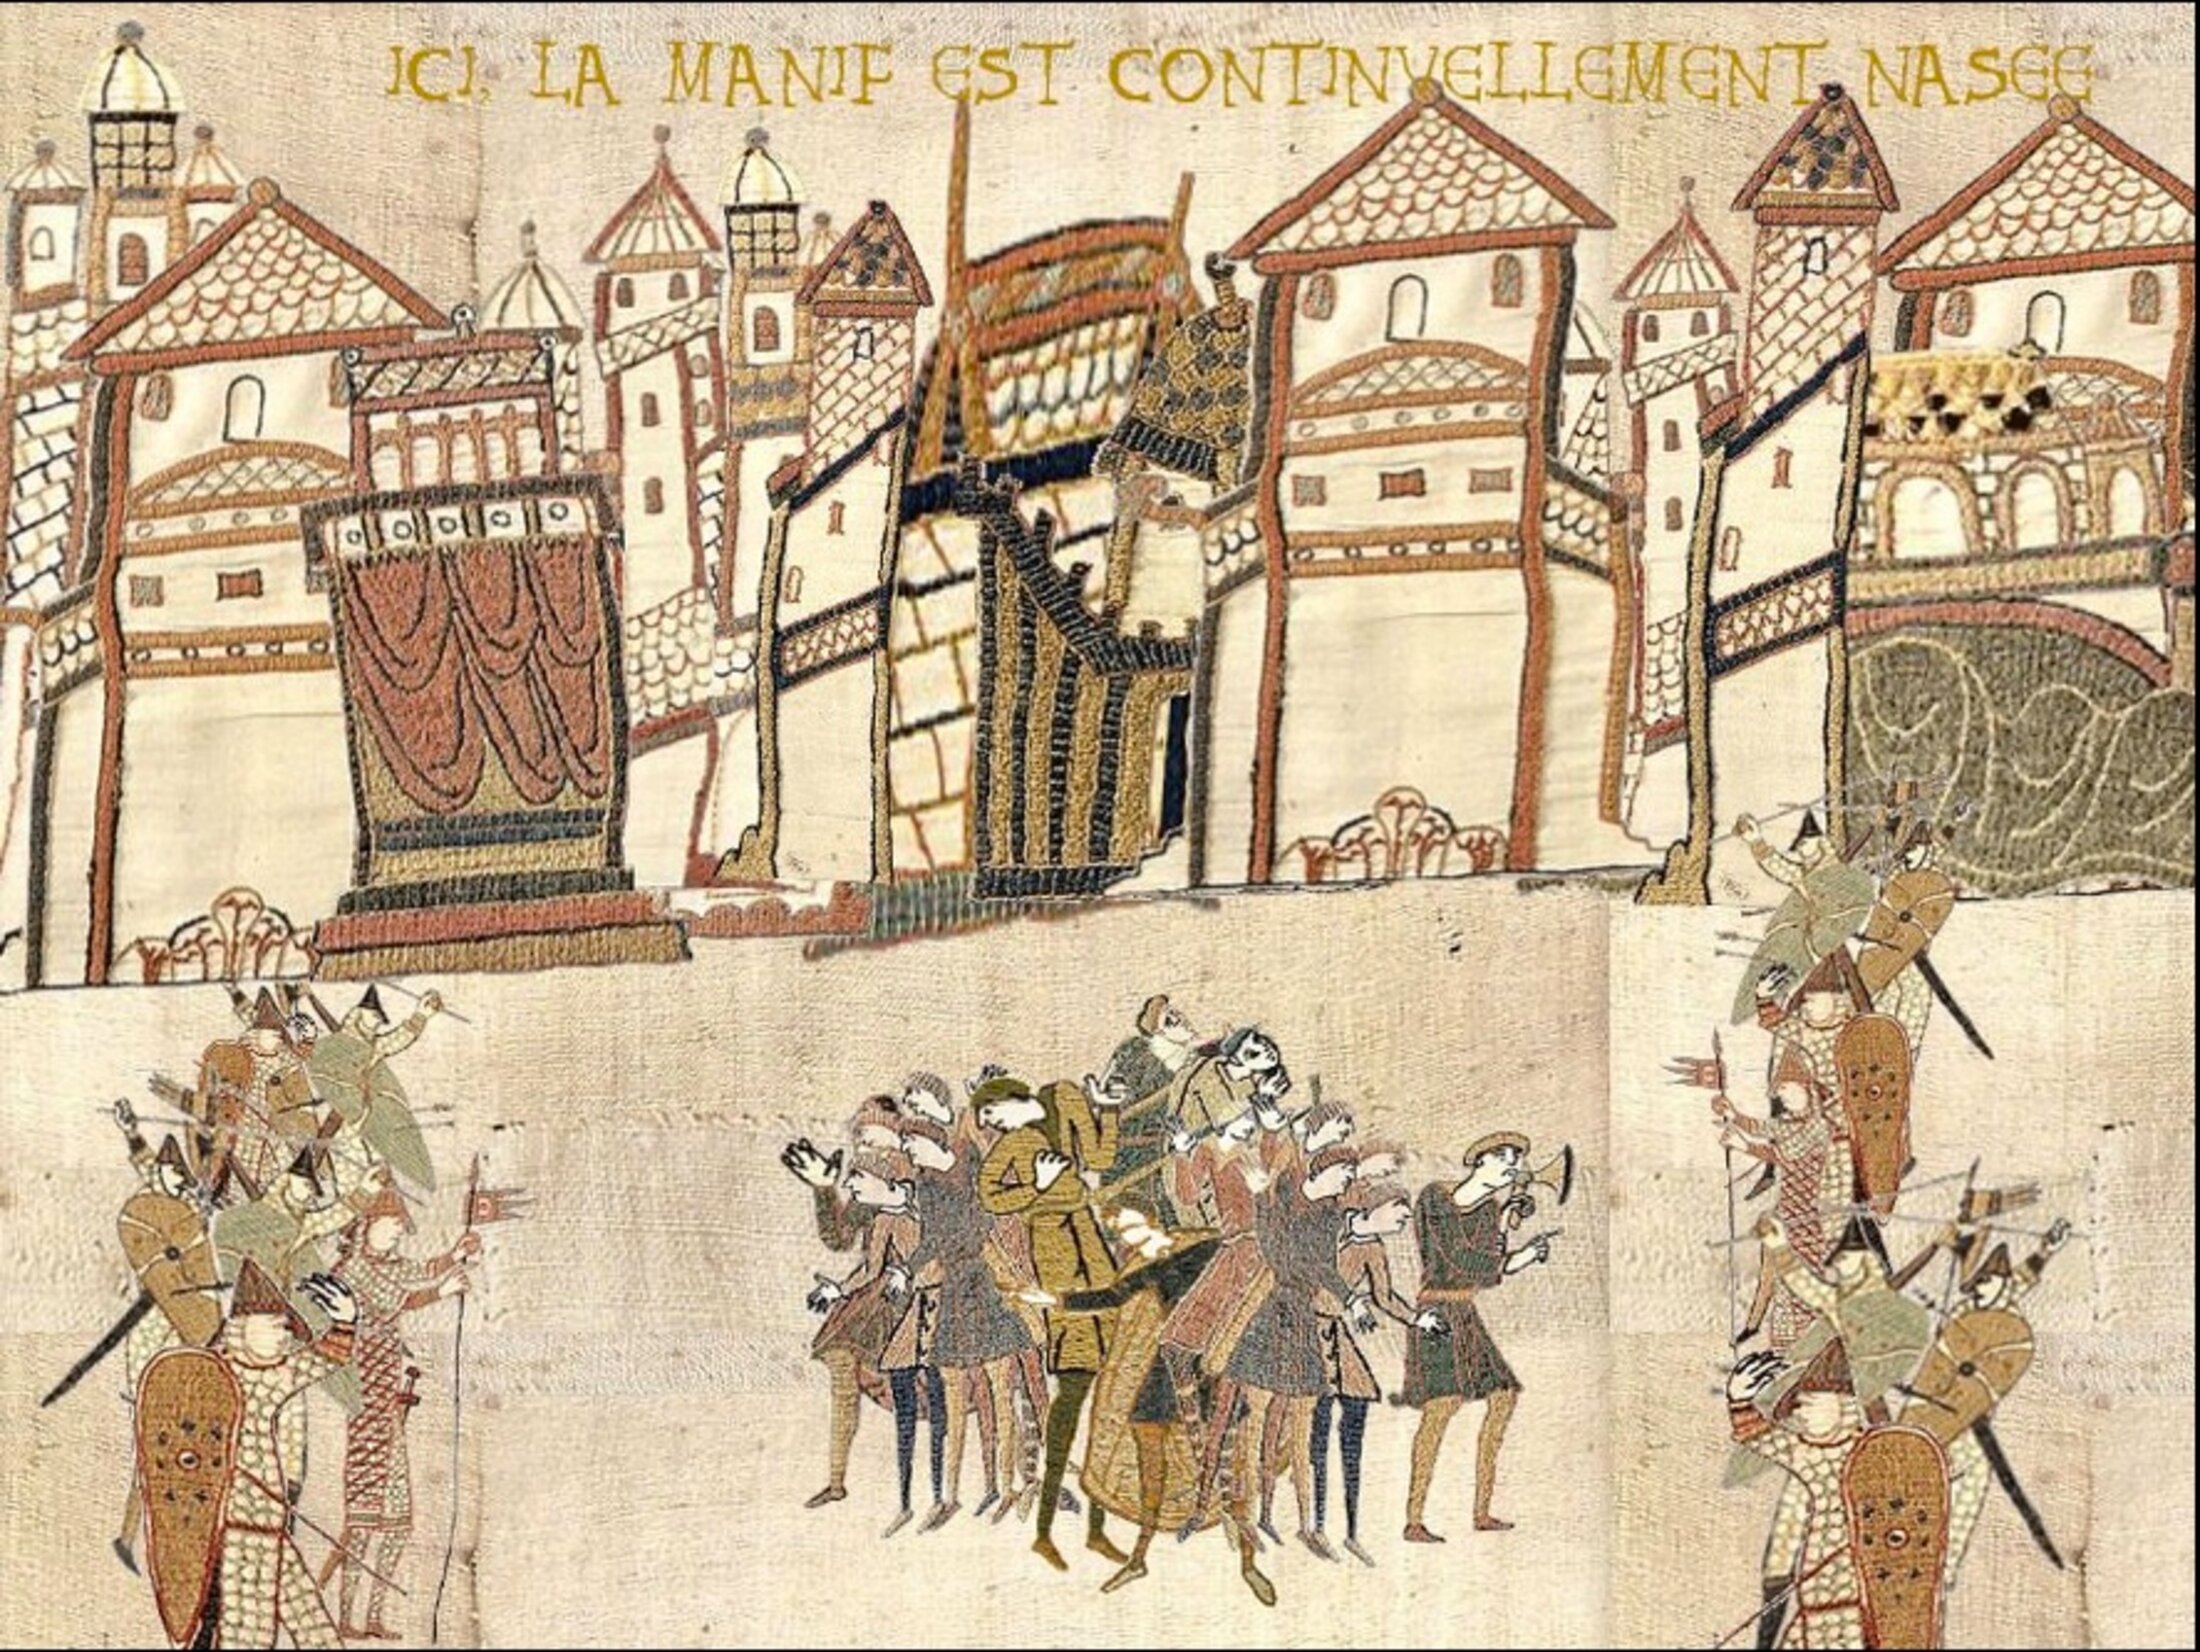 ICI, LA MANIF EST CONTINVELLEMENT NASEE